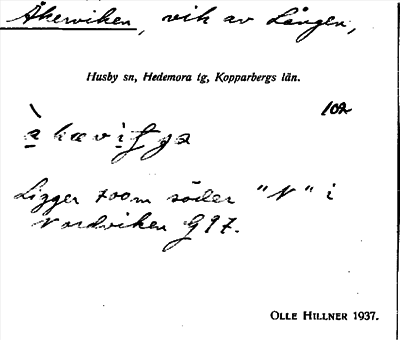 Åkerviken, vik av Lången,
Husby sn, Hedemora tg, Kopparbergs län.
102
Ligger 700 m söder "N" i
Nordviken G 97.
OLLE HILLNER 1937.